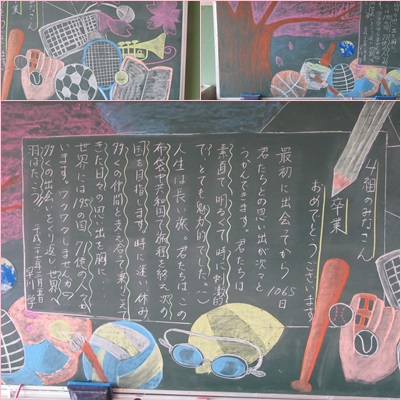 4組のみなさん
卒業
おめでとうございます
最初に出会ってから1065日
君たちとの思い出が次々と
うかんできます。君たちは
素直で、明るくて、時に刺激的
で?、とても魅力的でした。
人生は長い旅。君たちは、この
布袋中共和国で旅程を終え、次の
国を目指します。時に迷い、休み
多くの仲間と支え合って乗りこえて
きた日々の思い出を胸に…
世界には195の国、71億の人々が
います。ワクワクしませんか?
多くの出会いをくり返し、世界へ
羽ばたこう!!